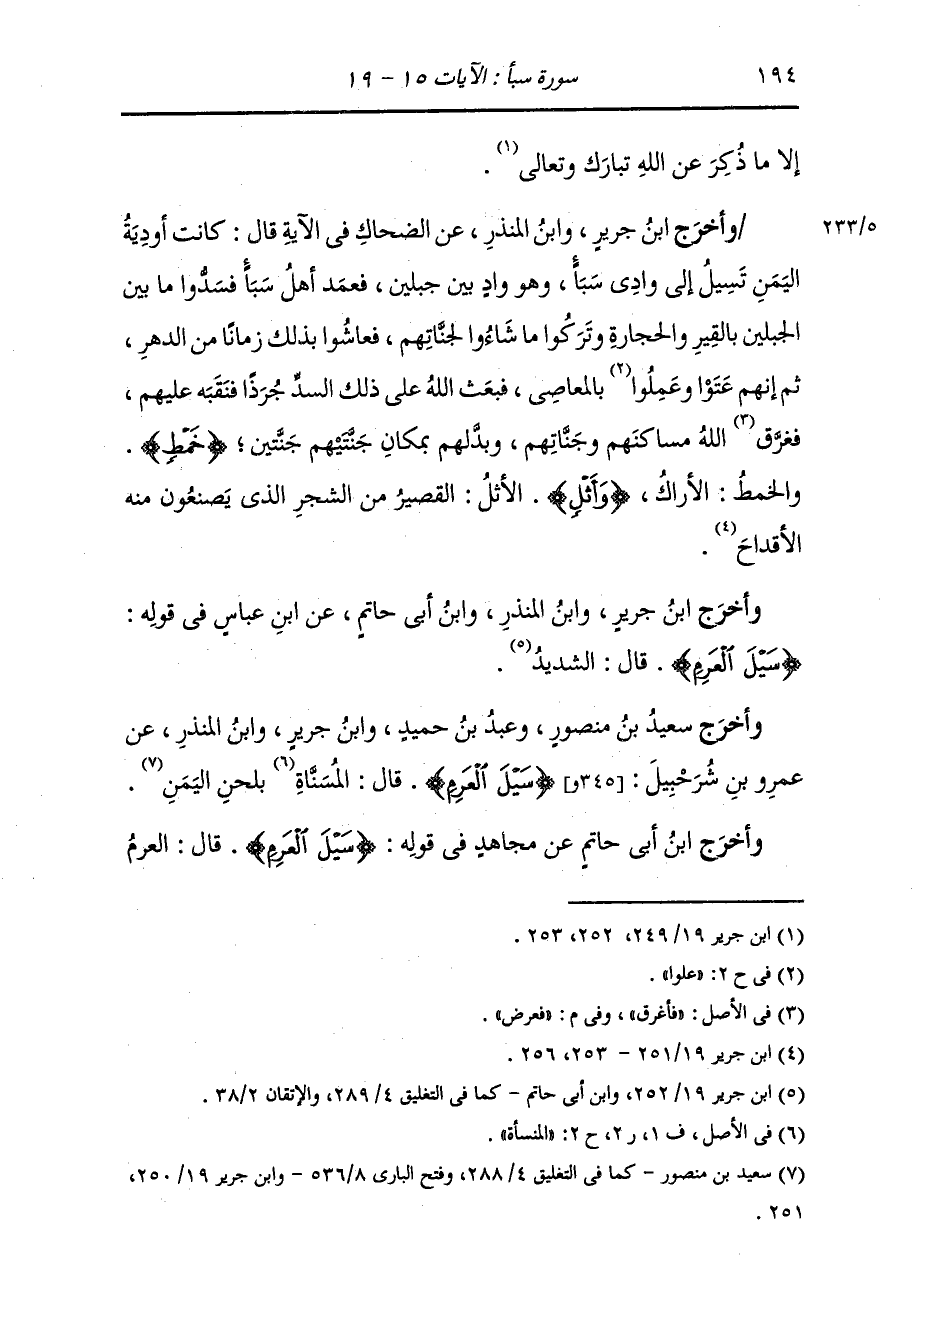 ١٩٤ سورة سبأ : الآيات ١٥ - ١٩
إلا ما ذُكِرَ عن اللهِ تبارَك وتعالى(١) .
٢٣٣/٥ /وأخرَج ابنُ جريرٍ ، وابنُ المنذرِ ، عن الضحاكِ فى الآيةِ قال : كانت أودِيَةُ
اليَمَنِ تَسِيلُ إلى وادِى سَبَأً ، وهو وادٍ بين جبلين ، فعمَد أهلُ سَبَأً فسَدُّوا ما بين
الجبلين بالقِيرِ والحجارةِ وتَرَكُوا ما شَاءُوا لجنَّاتِهم ، فعاشُوا بذلك زمانًا من الدهرِ ،
ثم إنهم عَتَوْا وعَمِلُوا(٢) بالمعاصِى ، فبعَث اللهُ على ذلك السدِّ جُرَذًا فنَقَبَه عليهم ،
فغرَّق(٣) اللهُ مساكنَهم وجَنَّاتِهم ، وبدَّلهم بمكانِ جَنَّتَيْهم جَنَّتين ؛ ﴿خَمْطٍ﴾ .
والخمطُ : الأراكُ ، ﴿وَأَثْلٍ﴾ . الأثلُ : القصيرُ من الشجرِ الذى يَصنعُون منه
الأقداحَ(٤) .
وأخرَج ابنُ جريرٍ ، وابنُ المنذرِ ، وابنُ أبى حاتمٍ ، عن ابنِ عباسٍ فى قولِه :
﴿سَيْلَ ٱلْعَرِمِ﴾ . قال : الشديدُ(٥) .
وأخرَج سعيدُ بنُ منصورٍ ، وعبدُ بنُ حميدٍ ، وابنُ جريرٍ ، وابنُ المنذرِ ، عن
عمرِو بنِ شُرَحْبِيلَ : [٣٤٥و] ﴿سَيْلَ ٱلْعَرِمِ﴾ . قال : المُسَنَّاةِ(٦) بلحنِ اليَمَنِ(٧) .
وأخرَج ابنُ أبى حاتمٍ عن مجاهدٍ فى قولِه : ﴿سَيْلَ ٱلْعَرِمِ﴾ . قال : العرمُ
(١) ابن جرير ١٩/ ٢٤٩، ٢٥٢، ٢٥٣ .
(٢) فى ح ٢: «علوا» .
(٣) فى الأصل : «فأغرق» ، وفى م : «فعرض» .
(٤) ابن جرير ٢٥١/١٩ - ٢٥٣، ٢٥٦ .
(٥) ابن جرير ١٩/ ٢٥٢، وابن أبى حاتم - كما فى التغليق ٤/ ٢٨٩، والإتقان ٣٨/٢ .
(٦) فى الأصل ، ف ١، ر ٢، ح ٢: «المنسأة» .
(٧) سعيد بن منصور - كما فى التغليق ٤/ ٢٨٨، وفتح البارى ٥٣٦/٨ - وابن جرير ١٩/ ٢٥٠،
٢٥١ .